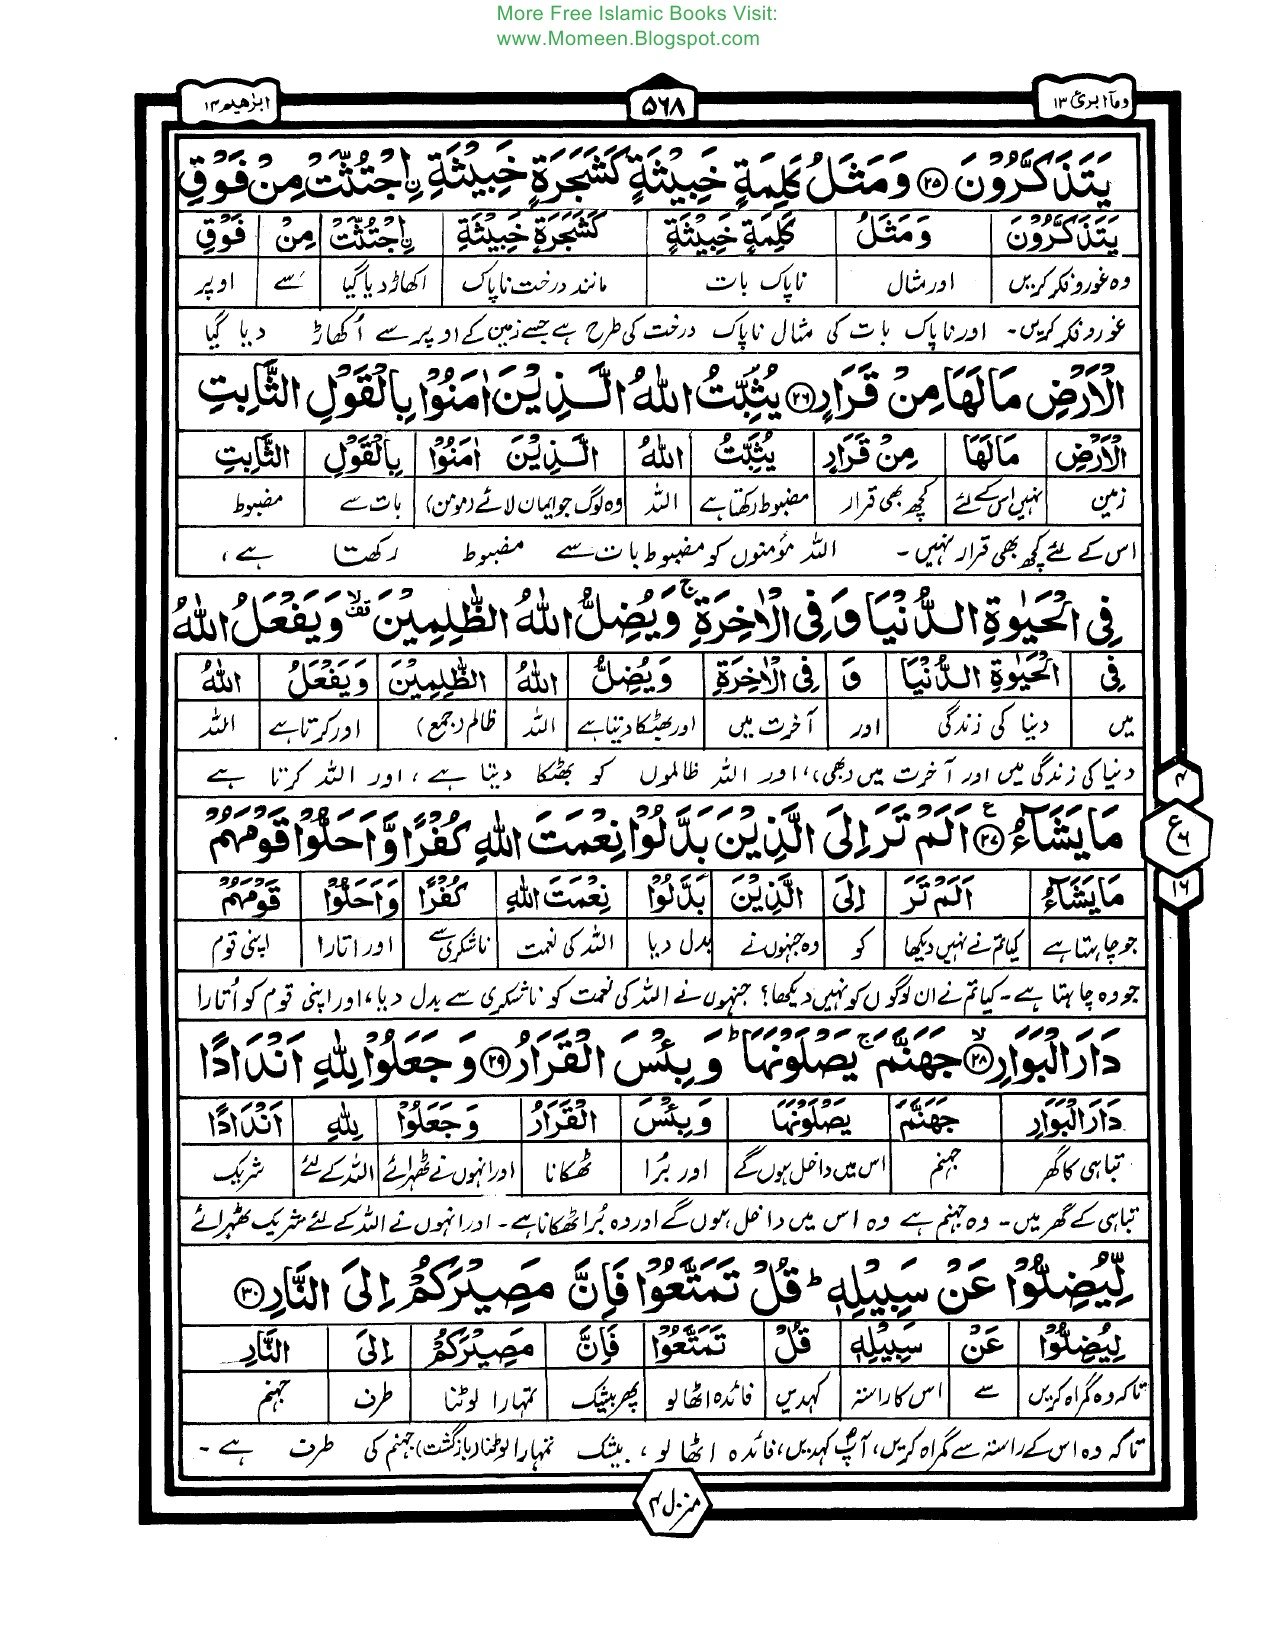 More Free Islamic Books Visit:
www.Momeen.Blogspot.com
ومآ ابرئ ۱۳
۵۶۸
ابرٰھیم ۱۴
یَتَذَكَّرُوْنَ ۲۵ وَ مَثَلُ كَلِمَةٍ خَبِیْثَةٍ كَشَجَرَةٍ خَبِیْثَةِ ࣙاجْتُثَّتْ مِنْ فَوْقِ
یَتَذَكَّرُوْنَ وَ مَثَلُ كَلِمَةٍ خَبِیْثَةٍ كَشَجَرَةٍ خَبِیْثَةِ ࣙاجْتُثَّتْ مِنْ فَوْقِ
وہ غور و فکر کریں اور مثال ناپاک بات مانند درخت ناپاک اکھاڑ دیا گیا سے اوپر
غور و فکر کریں۔ اور ناپاک بات کی مثال ناپاک درخت کی طرح ہے جسے زمین کے اوپر سے اُکھاڑ دیا گیا
الْاَرْضِ مَا لَهَا مِنْ قَرَارٍ ۲۶ یُثَبِّتُ اللّٰهُ الَّذِیْنَ اٰمَنُوْا بِالْقَوْلِ الثَّابِتِ
الْاَرْضِ مَا لَهَا مِنْ قَرَارٍ یُثَبِّتُ اللّٰهُ الَّذِیْنَ اٰمَنُوْا بِالْقَوْلِ الثَّابِتِ
زمین نہیں اس کے لئے کچھ بھی قرار مضبوط رکھتا ہے اللہ وہ لوگ جو ایمان لائے (مومن) بات سے مضبوط
اس کے لئے کچھ بھی قرار نہیں۔ اللہ مؤمنوں کو مضبوط بات سے مضبوط رکھتا ہے،
فِی الْحَیٰوةِ الدُّنْیَا وَ فِی الْاٰخِرَةِ ۚ وَ یُضِلُّ اللّٰهُ الظّٰلِمِیْنَ وَ یَفْعَلُ اللّٰهُ
فِی الْحَیٰوةِ الدُّنْیَا وَ فِی الْاٰخِرَةِ وَ یُضِلُّ اللّٰهُ الظّٰلِمِیْنَ وَ یَفْعَلُ اللّٰهُ
میں دنیا کی زندگی اور آخرت میں اور بھٹکا دیتا ہے اللہ ظالم (جمع) اور کرتا ہے اللہ
دنیا کی زندگی میں اور آخرت میں (بھی)، اور اللہ ظالموں کو بھٹکا دیتا ہے، اور اللہ کرتا ہے
مَا یَشَآءُ ۲۷ اَلَمْ تَرَ اِلَی الَّذِیْنَ بَدَّلُوْا نِعْمَتَ اللّٰهِ كُفْرًا وَّ اَحَلُّوْا قَوْمَهُمْ
۴
ع ۶
۱۶
مَا یَشَآءُ اَلَمْ تَرَ اِلَی الَّذِیْنَ بَدَّلُوْا نِعْمَتَ اللّٰهِ كُفْرًا وَّ اَحَلُّوْا قَوْمَهُمْ
جو چاہتا ہے کیا تم نے نہیں دیکھا کو وہ جنہوں نے بدل دیا اللہ کی نعمت ناشکری سے اور اتارا اپنی قوم
جو وہ چاہتا ہے۔ کیا تم نے ان لوگوں کو نہیں دیکھا؟ جنہوں نے اللہ کی نعمت کو ناشکری سے بدل دیا، اور اپنی قوم کو اُتارا
دَارَ الْبَوَارِ ۲۸ جَهَنَّمَ ۚ یَصْلَوْنَهَا ؕ وَ بِئْسَ الْقَرَارُ ۲۹ وَ جَعَلُوْا لِلّٰهِ اَنْدَادًا
دَارَ الْبَوَارِ جَهَنَّمَ یَصْلَوْنَهَا وَ بِئْسَ الْقَرَارُ وَ جَعَلُوْا لِلّٰهِ اَنْدَادًا
تباہی کا گھر جہنم اس میں داخل ہوں گے اور بُرا ٹھکانا اور انہوں نے ٹھہرائے اللہ کے لئے شریک
تباہی کے گھر میں۔ وہ جہنم ہے وہ اس میں داخل ہوں گے اور وہ بُرا ٹھکانا ہے۔ اور انہوں نے اللہ کے لئے شریک ٹھہرائے
لِّیُضِلُّوْا عَنْ سَبِیْلِهٖ ؕ قُلْ تَمَتَّعُوْا فَاِنَّ مَصِیْرَكُمْ اِلَی النَّارِ ۳۰
لِیُضِلُّوْا عَنْ سَبِیْلِهٖ قُلْ تَمَتَّعُوْا فَاِنَّ مَصِیْرَكُمْ اِلَی النَّارِ
تاکہ وہ گمراہ کریں سے اس کا راستہ کہدیں فائدہ اٹھا لو پھر بیشک تمہارا لوٹنا طرف جہنم
تاکہ وہ اس کے راستہ سے گمراہ کریں، آپؐ کہدیں، فائدہ اٹھا لو، بیشک تمہارا لوٹنا (بازگشت) جہنم کی طرف ہے۔
منزل ۳